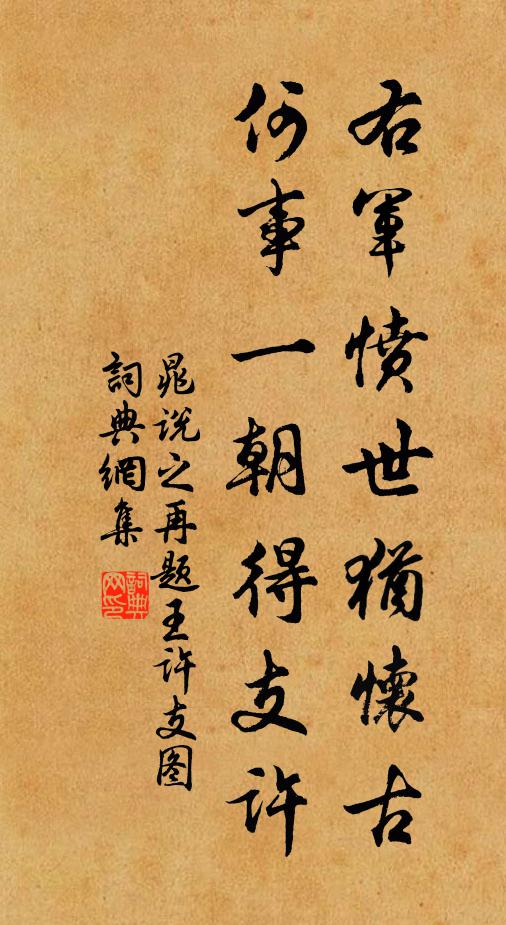 右軍憤世猶懷古
何事一朝得支許
晁說之再題王許支图
詞典網集
詞典网印